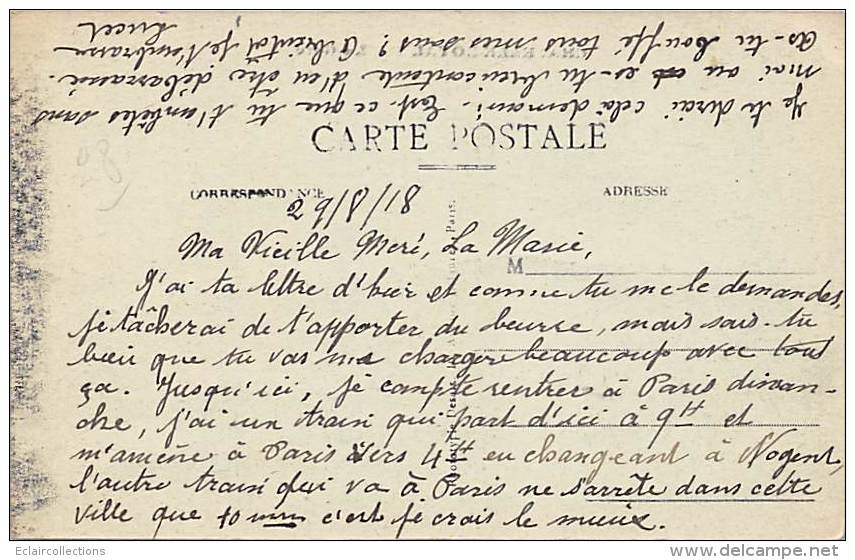 CARTE POSTALE
CORRESPONDANCE
ADRESSE
M
Ma Vieille Meré, La Masie,
J'ai ta lettre d'hier et comme tu me le demandes,
je tâcherai de t'apporter du beurre, mais sais-tu
bien que tu vas me charger beaucoup avec tout
ça. Jusqu'ici, je compte rentrer à Paris diman-
che, j'ai un train qui part d'ici à 9H et
m'amène à Paris vers 4H en changeant à Nogent,
l'autre train qui va à Paris ne s'arrête dans cette
ville que 10 mn c'est je crois le mieux.
Je te dirai cela demain. Est-ce que tu t'embêtes sans
moi ou es-tu bien contente d'en être débarrassée.
As-tu bouffé tous mes sous? A bientôt je t'embrasse
Lucet
Eclaircollections
www.delcampe.net